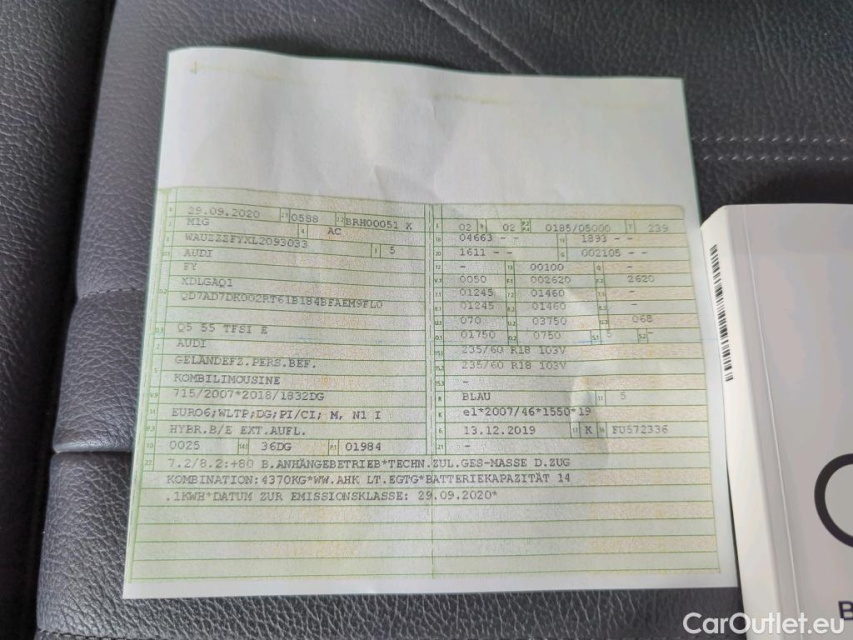 29.09.2020 0588 BRH00051 X
M1G AC
WAUZZZFYXL2093033 5
AUDI
FY
XDLGAQ1
QD7AD7DK002RT61B184BFAEM9FL0
Q5 55 TFSI E
AUDI
GELÄNDEFZ.PERS.BEF.
KOMBILIMOUSINE
715/2007*2018/1832DG
EURO6;WLTP;DG;PI/CI; M, N1 I
HYBR.B/E EXT.AUFL.
0025 36DG 01984
02 02 0185/05000 239
04663 - - 1893 - -
1611 - - 002105 - -
- 00100 -
0050 002620 2620
01245 01460 -
01245 01460 -
070 03750 068
01750 0750 5 -
235/60 R18 103V
235/60 R18 103V
-
BLAU 5
e1*2007/46*1550*19
13.12.2019 K FU572336
-
7.2/8.2:+80 B.ANHÄNGEBETRIEB*TECHN.ZUL.GES-MASSE D.ZUG
KOMBINATION:4370KG*WW.AHK LT.EGTG*BATTERIEKAPAZITÄT 14
.1KWH*DATUM ZUR EMISSIONSKLASSE: 29.09.2020*
B
CarOutlet.eu